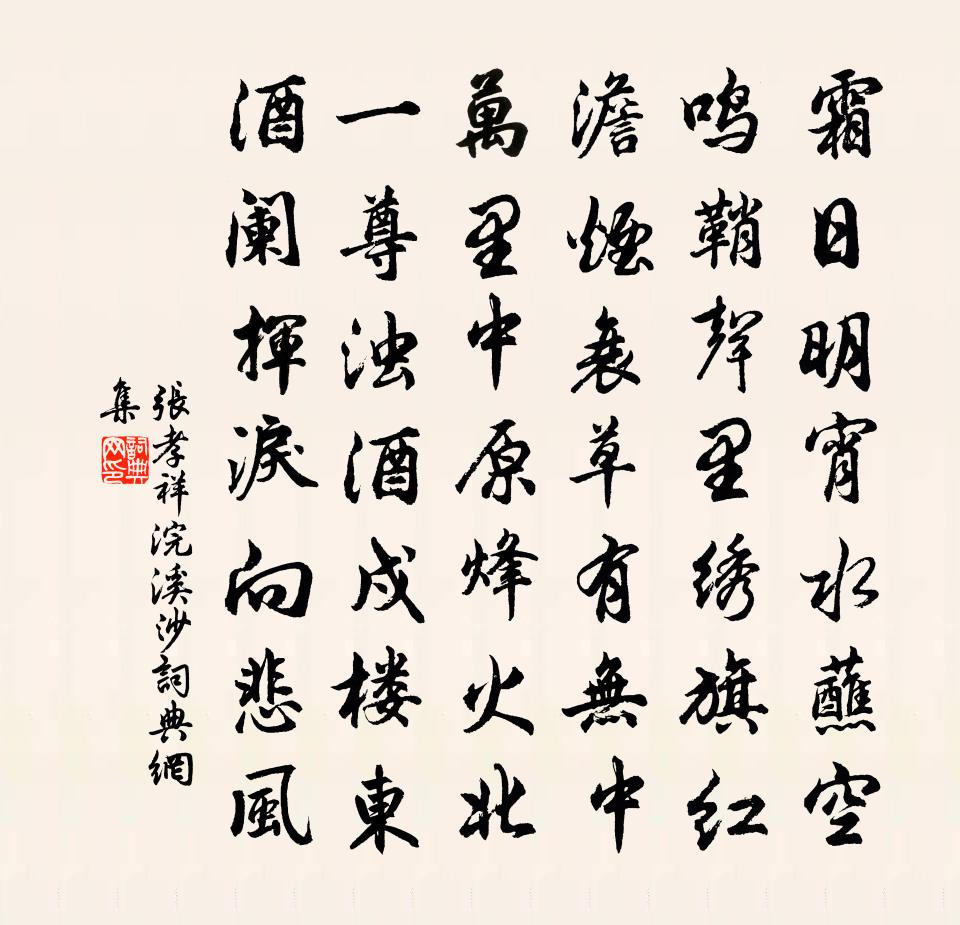 霜日明宵水蘸空
鸣鞘聲里绣旗红
澹煙衰草有無中
萬里中原烽火北
一尊浊酒戍楼東
酒阑揮淚向悲風
張孝祥浣溪沙詞典網
集
詞典网印